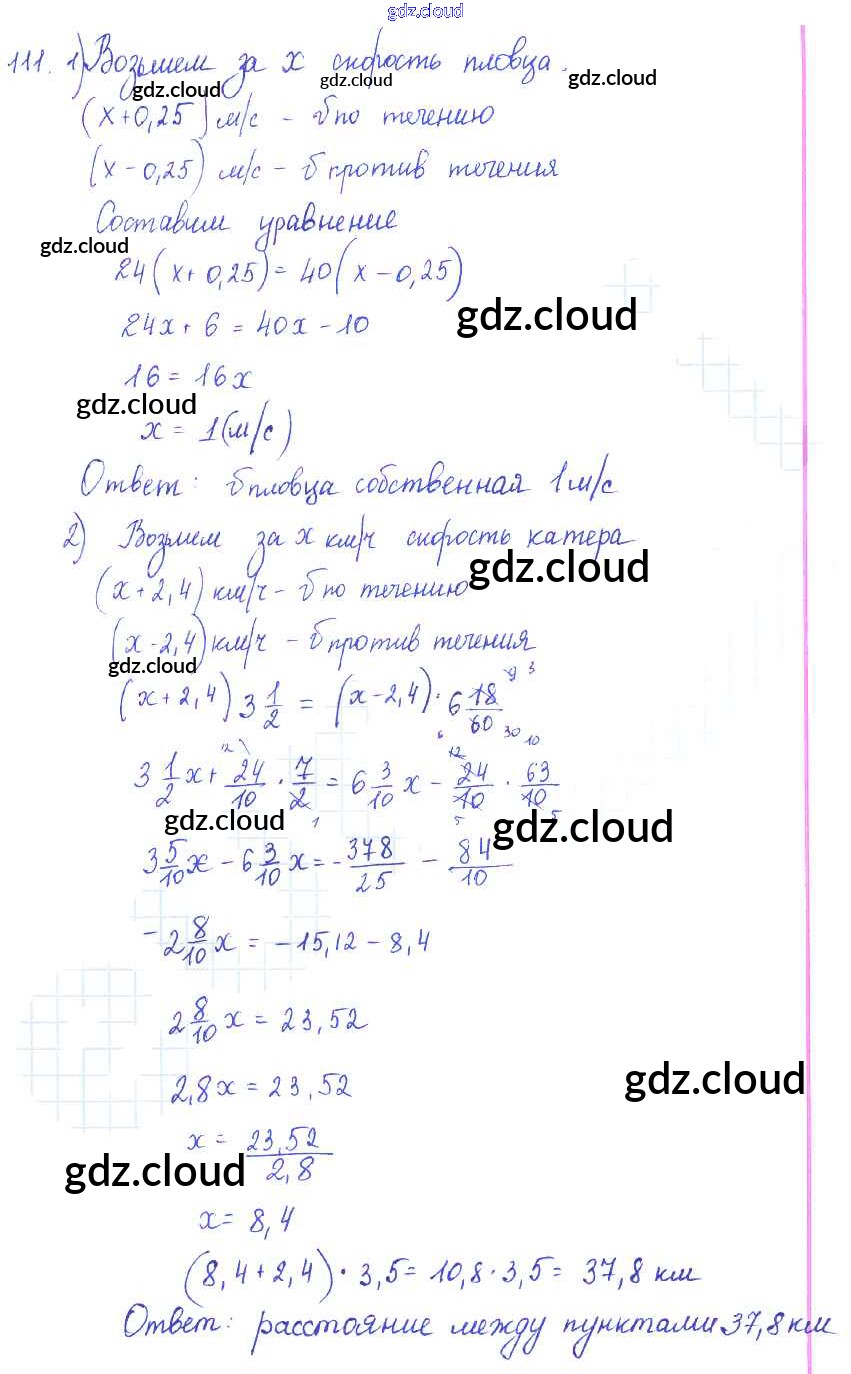 gdz.cloud
111. 1) Возьмем за x скорость пловца.
gdz.cloud gdz.cloud gdz.cloud
(x+0,25) м/с - υ по течению
(x-0,25) м/с - υ против течения
Составим уравнение
gdz.cloud
24(x+0,25) = 40(x-0,25)
gdz.cloud
24x+6 = 40x-10
16 = 16x
gdz.cloud
x = 1(м/с)
Ответ: υ пловца собственная 1м/с
2) Возьмем за x км/ч скорость катера
gdz.cloud
(x+2,4) км/ч - υ по течению
(x-2,4) км/ч - υ против течения
gdz.cloud
(x+2,4) 3 1/2 = (x-2,4) · 6 18/60
3 1/2 x + 24/10 · 7/2 = 6 3/10 x - 24/10 · 63/10
gdz.cloud gdz.cloud
3 5/10 x - 6 3/10 x = - 378/25 - 84/10
-2 8/10 x = -15,12 - 8,4
2 8/10 x = 23,52
gdz.cloud
2,8x = 23,52
x = 23,52/2,8
gdz.cloud
x = 8,4
(8,4+2,4) · 3,5 = 10,8 · 3,5 = 37,8 км
Ответ: расстояние между пунктами 37,8 км